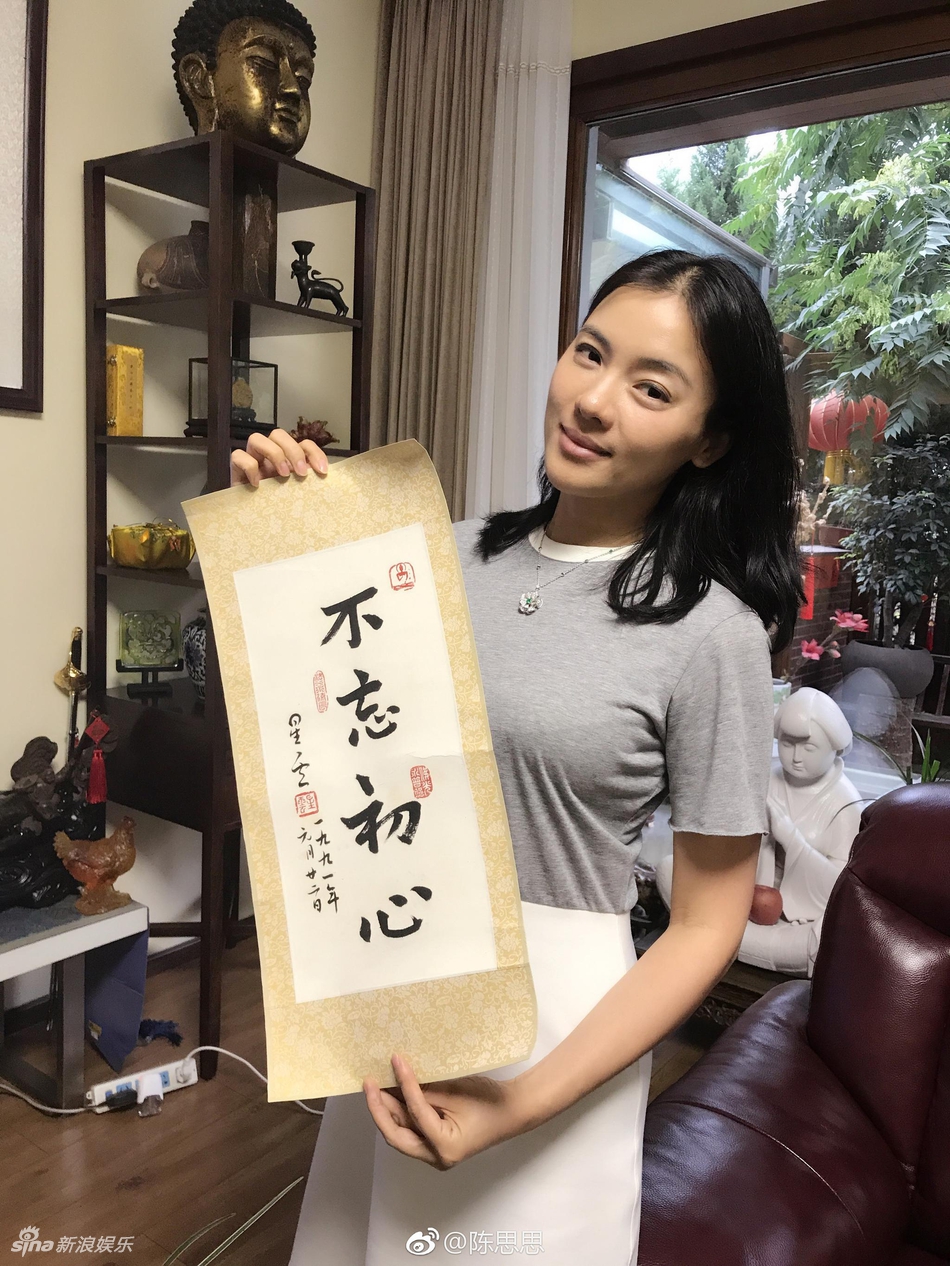 不忘初心
星云
一九九一年
元月廿二日
sina新浪娱乐
@陈思思